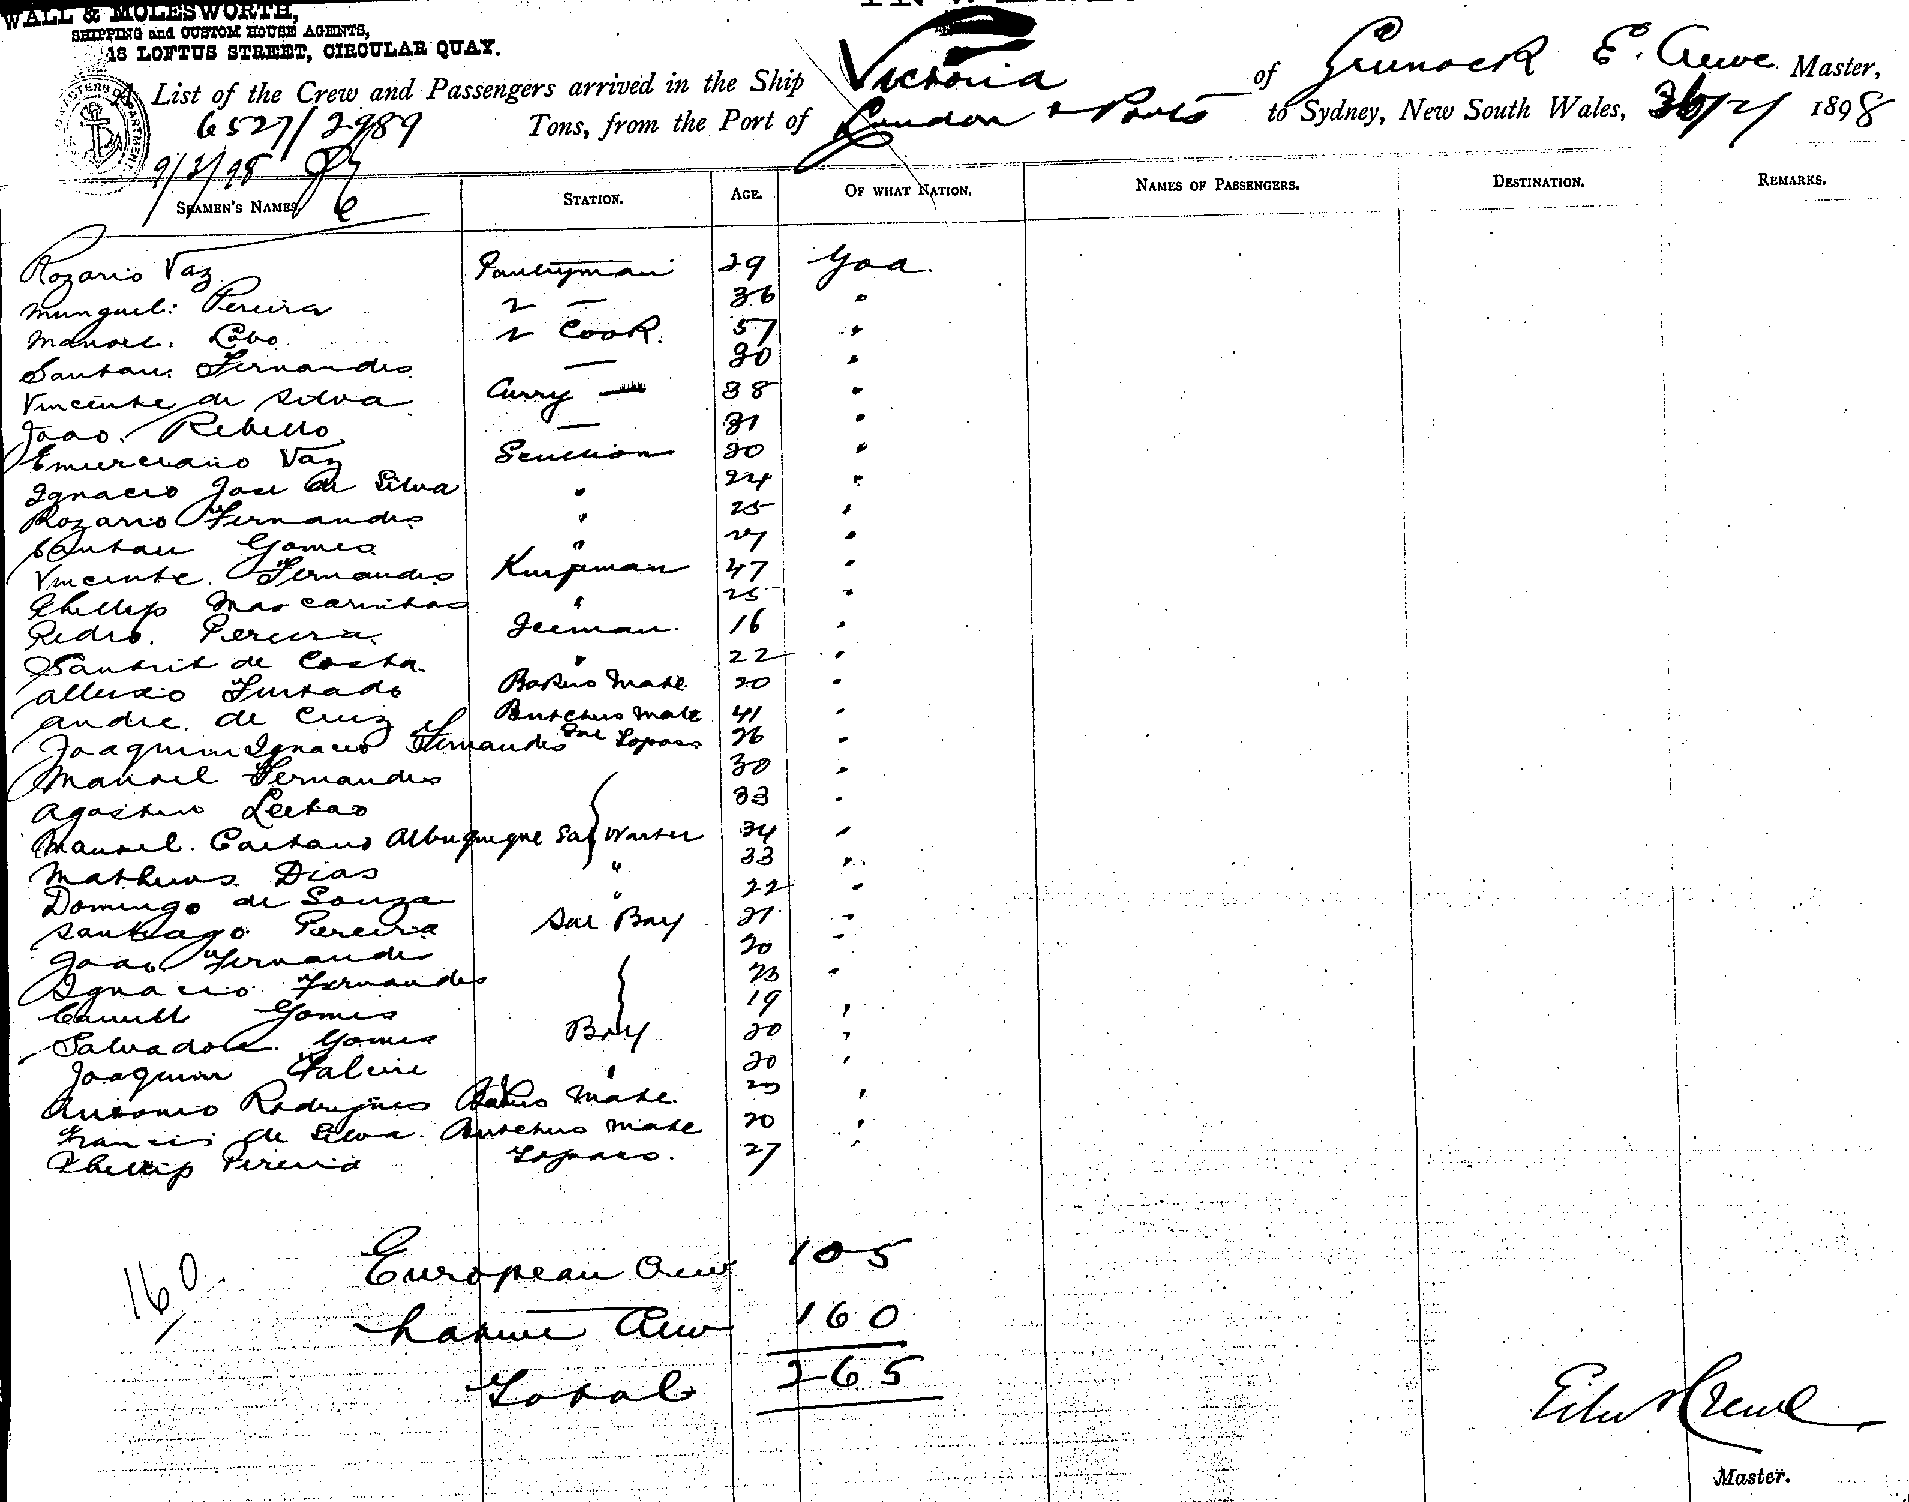 WALL & MOLESWORTH,
SHIPPING and CUSTOM HOUSE AGENTS,
18 LOFTUS STREET, CIRCULAR QUAY.
A List of the Crew and Passengers arrived in the Ship Victoria of Greenock E. Crewe Master,
6527/2989 Tons, from the Port of London & Ports to Sydney, New South Wales, 1898
SEAMEN'S NAMES. STATION. AGE. OF WHAT NATION. NAMES OF PASSENGERS. DESTINATION. REMARKS.
Rozario Vaz Pantryman 29 Goa
Munguel Pereira " — 36 "
Manoel Lobo " Cook. 57 "
Santan Fernandes — 30 "
Vincente de Silva Curry — 38 "
Joao. Rebello — 31 "
Emerciano Vaz Scullion 30 "
Ignacio Jose de Silva " 24 "
Rozario Fernandes " 25 "
Santan Gomes "
Vincente. Fernandes 47 "
Phillip Mascarinhas " 25 "
Pedro. Pereira 16 "
de Costa " 22 "
Furtado Bakers Mate 20 "
Andre. de Cruz Butchers Mate 41 "
Joaquim Ignacio Fernandes Topass 26 "
Manoel Fernandes 30 "
Agostino Leitao 33 "
Manoel. Caetano Albuquerque Sal Waiter 34 "
Matheus Dias " 33 "
Domingo de Souza " 22 "
Santiago Pereira Sal Boy 21 "
Joao Fernandes 20 "
Ignacio Fernandes 23 "
Gomes 19 "
Salvadore Gomes Boy 20 "
Joaquim " 20 "
Antonio Rodrigues Bakers Mate "
Francis de Silva. Butchers Mate 20 "
Phillip Pereira Topass. 27
160
European Crew 105
Lascar Crew 160
Total 265
Edw Crewe
Master.